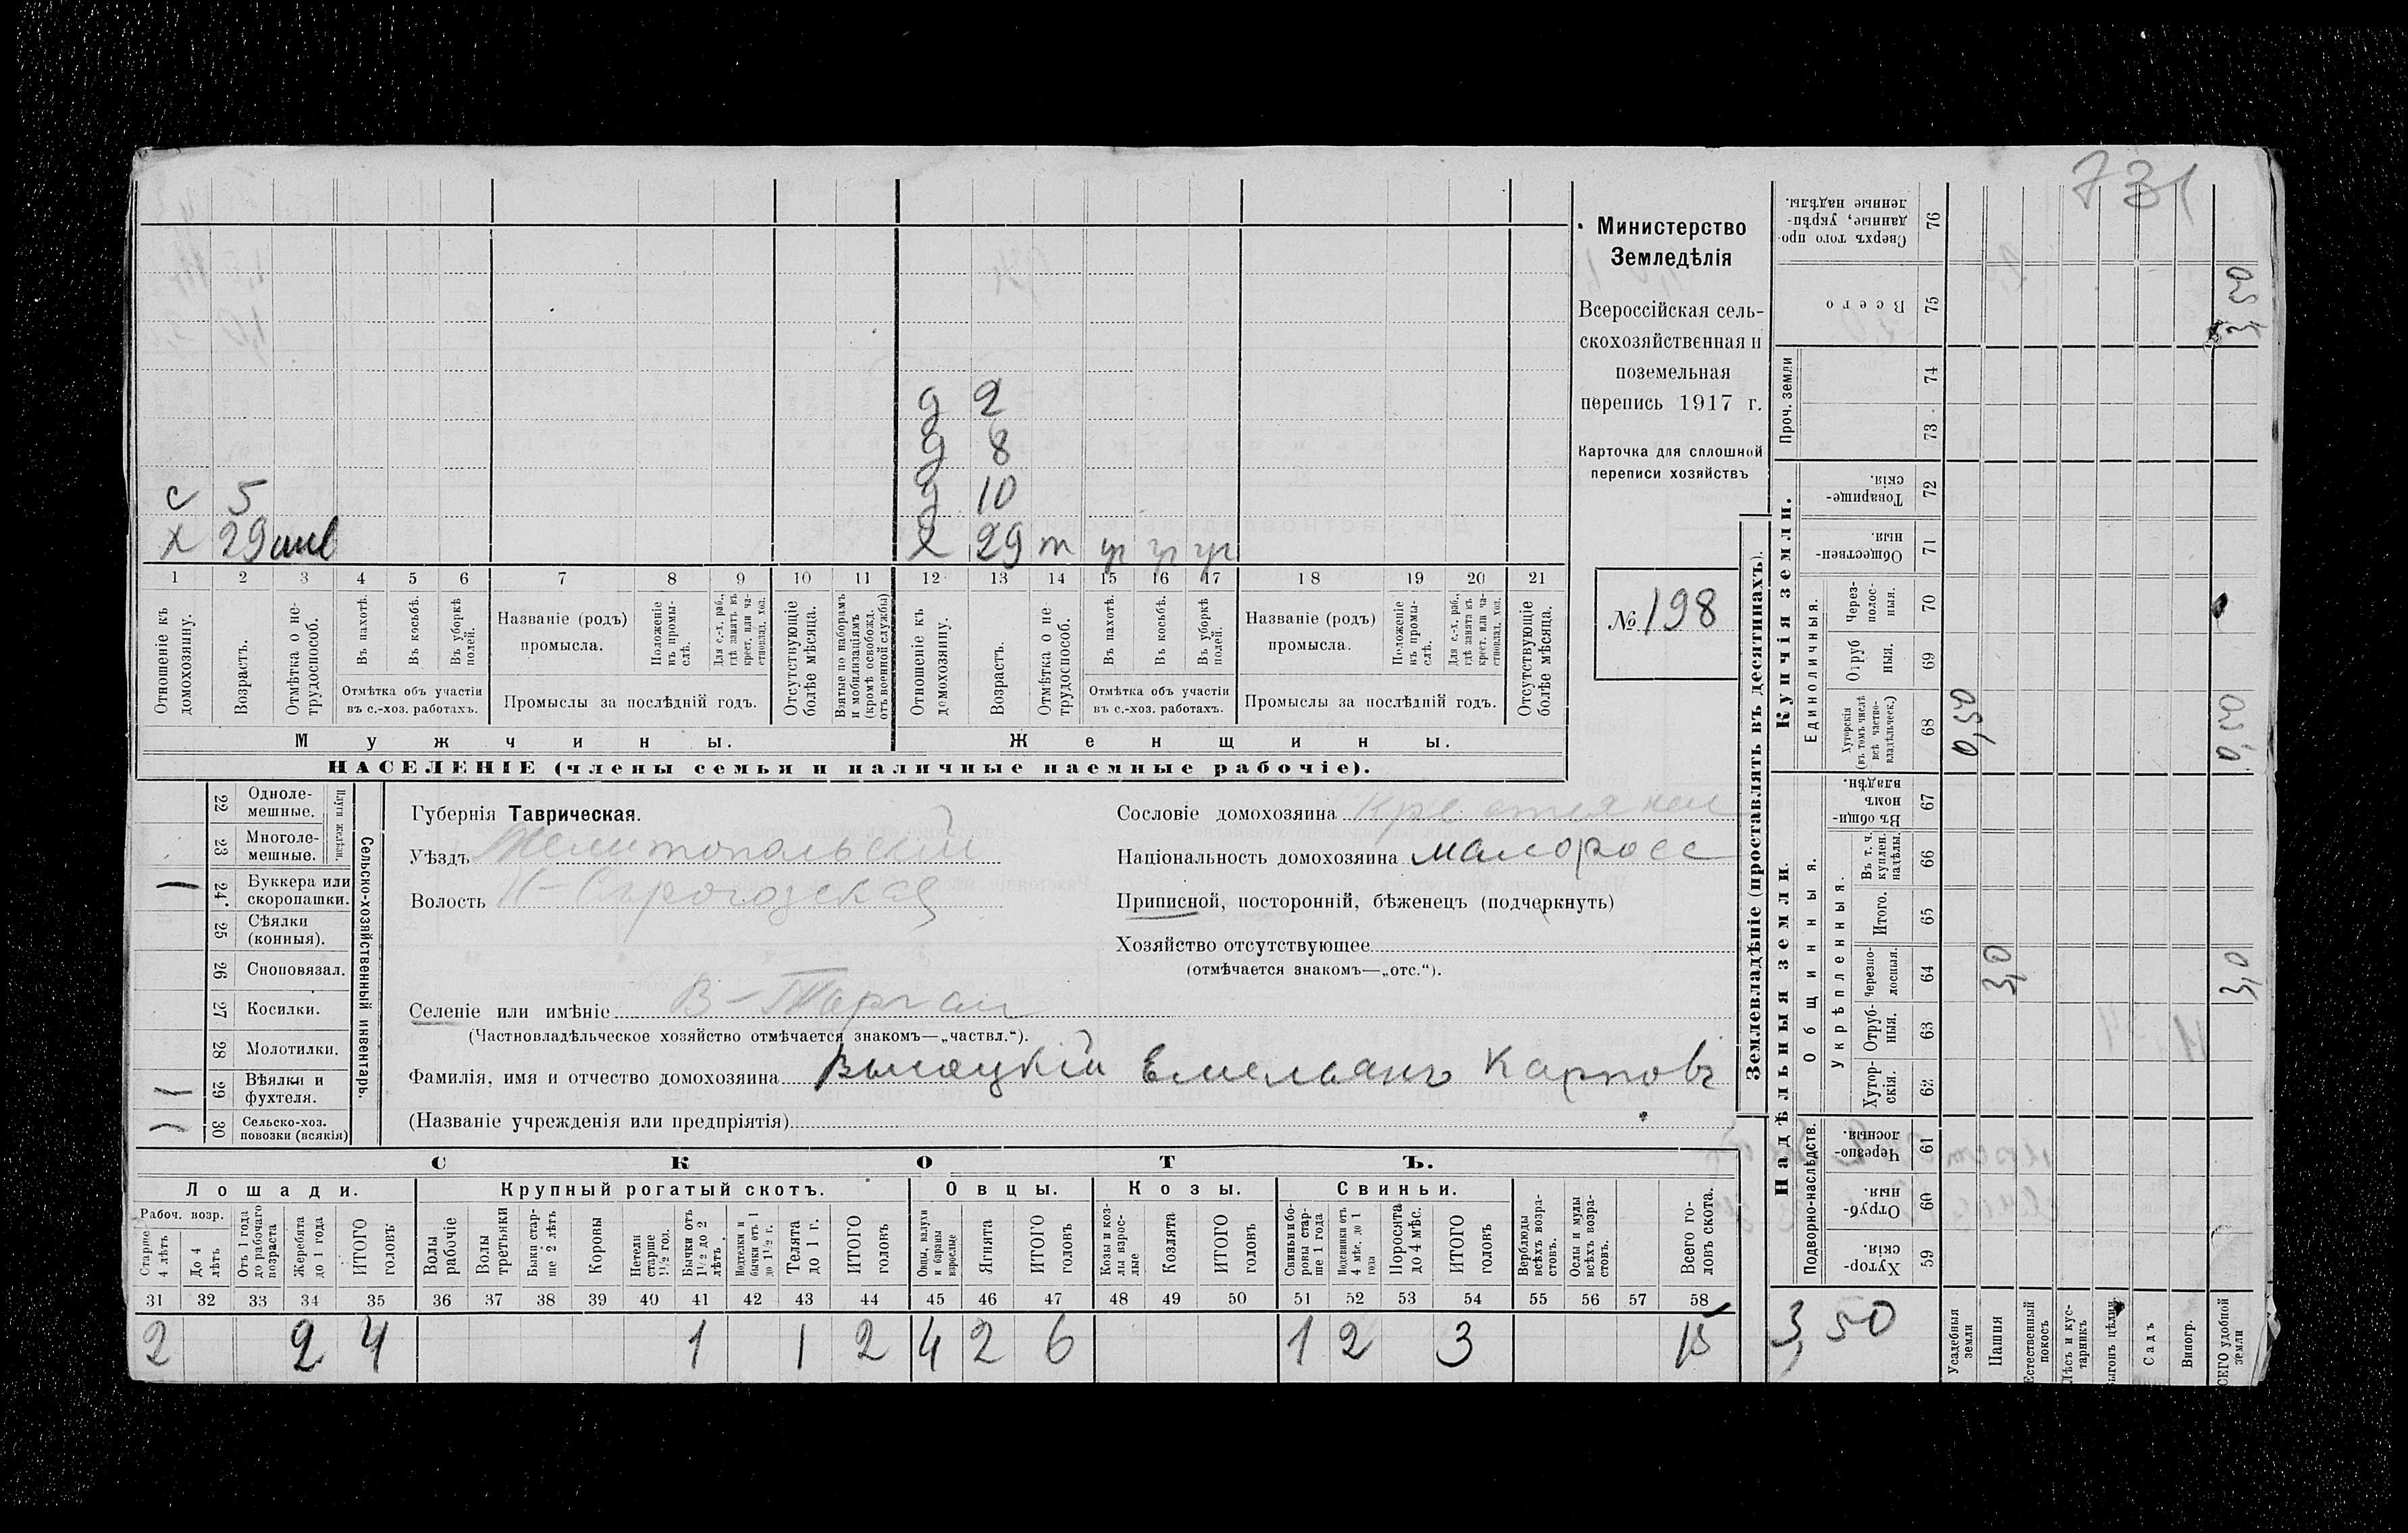 731
Министерство
Земледѣлія
Всероссійская сель-
скохозяйственная и
поземельная
перепись 1917 г.
Карточка для сплошной
переписи хозяйствъ
№ 198
д 2
д 8
с 5 д 10
х 29 х 29 т уг уг уг
1 2 3 4 5 6 7 8 9 10 11 12 13 14 15 16 17 18 19 20 21
Отношеніе къ домохозяину.
Возрастъ.
Отмѣтка о не-трудоспособ.
Въ пахотѣ.
Въ косьбѣ.
Въ уборкѣ полей.
Отмѣтка объ участіи
въ с.-хоз. работахъ.
Названіе (родъ)
промысла.
Положеніе въ промы-слѣ.
Для с.-х. раб., гдѣ занятъ въ крест. или ча-стновлад. хоз.
Промыслы за послѣдній годъ.
Отсутствующіе болѣе мѣсяца.
Взятые по наборамъ и мобилизаціямъ (кромѣ освобожд. отъ военной службы)
Отношеніе къ домохозяину.
Возрастъ.
Отмѣтка о не-трудоспособ.
Въ пахотѣ.
Въ косьбѣ.
Въ уборкѣ полей.
Отмѣтка объ участіи
въ с.-хоз. работахъ.
Названіе (родъ)
промысла.
Положеніе въ промы-слѣ.
Для с.-х. раб., гдѣ занята въ крест. или ча-стновлад. хоз.
Промыслы за послѣдній годъ.
Отсутствующіе болѣе мѣсяца.
Мужчины. Женщины.
НАСЕЛЕНІЕ (члены семьи и наличные наемные рабочіе).
Сельско-хозяйственный инвентарь.
Плуги желѣзн.
22 Одноле-мешные.
23 Многоле-мешные.
24 Буккера или скоропашки.
25 Сѣялки (конныя).
26 Сноповязал.
27 Косилки.
28 Молотилки.
29 Вѣялки и фухтеля.
30 Сельско-хоз. повозки (всякія)
Губернія Таврическая.
Уѣздъ Мелитопольскій
Волость Н-Сѣрогозская
Селеніе или имѣніе В-Торгаи
(Частновладѣльческое хозяйство отмѣчается знакомъ—„частвл.“).
Сословіе домохозяина
Національность домохозяина малоросс
Приписной, посторонній, бѣженецъ (подчеркнуть)
Хозяйство отсутствующее
(отмѣчается знакомъ—„отс.“).
Фамилія, имя и отчество домохозяина Высоцкій Емельянъ Карповъ
(Названіе учрежденія или предпріятія)
СКОТЪ.
Лошади. Крупный рогатый скотъ. Овцы. Козы. Свиньи.
Рабоч. возр.
Старше 4 лѣтъ
До 4 лѣтъ
Отъ 1 года до рабочаго возраста
Жеребята до 1 года
ИТОГО головъ
Волы рабочіе
Волы третьяки
Быки стар-ше 2 лѣтъ
Коровы
Нетели старше 1½ год.
Бычки отъ 1½ до 2 лѣтъ
Подтелки и бычки отъ 1 до 1½ г.
Телята до 1 г.
ИТОГО головъ
Овцы, валухи и бараны взрослые
Ягнята
ИТОГО головъ
Козы и коз-лы взрос-лые
Козлята
ИТОГО головъ
Свиньи и бо-ровы стар-ше 1 года
Подсвинки отъ 4 мѣс. до 1 года
Поросята до 4 мѣс.
ИТОГО головъ
Верблюды всѣхъ возра-стовъ.
Ослы и мулы всѣхъ возра-стовъ.
Всего го-ловъ скота.
31 32 33 34 35 36 37 38 39 40 41 42 43 44 45 46 47 48 49 50 51 52 53 54 55 56 57 58
2 2 4 1 1 2 4 2 6 1 2 3 15
Землевладѣніе (проставлять въ десятинахъ).
Купчія земли.
Надѣльныя земли.
Сверхъ того про-данные, укрѣп-ленные надѣлы. 76
Всего 75 3,50
Проч. земли
74
73
Товарище-скія. 72
Обществен-ныя. 71
Единоличныя.
Через-полос-ныя. 70
Отруб-ныя. 69
Хуторскія (въ томъ числѣ всѣ частно-владѣльческ.) 68 0,50 0,50
Общинныя.
Въ общи-номъ владѣн. 67
Укрѣпленныя.
Въ т. ч. куплен. надѣлы. 66
Итого. 65
Черезпо-лосныя. 64 3,0 3,0
Отруб-ныя. 63
Хутор-скія. 62
Подворно-наслѣдств.
Черезпо-лосныя. 61
Отруб-ныя. 60
Хутор-скія. 59
3,50
Усадебныя земли
Пашня
Естественный покосъ
Лѣсъ и кус-тарникъ
Выгонъ цѣлин.
Садъ
Виногр.
ВСЕГО удобной земли